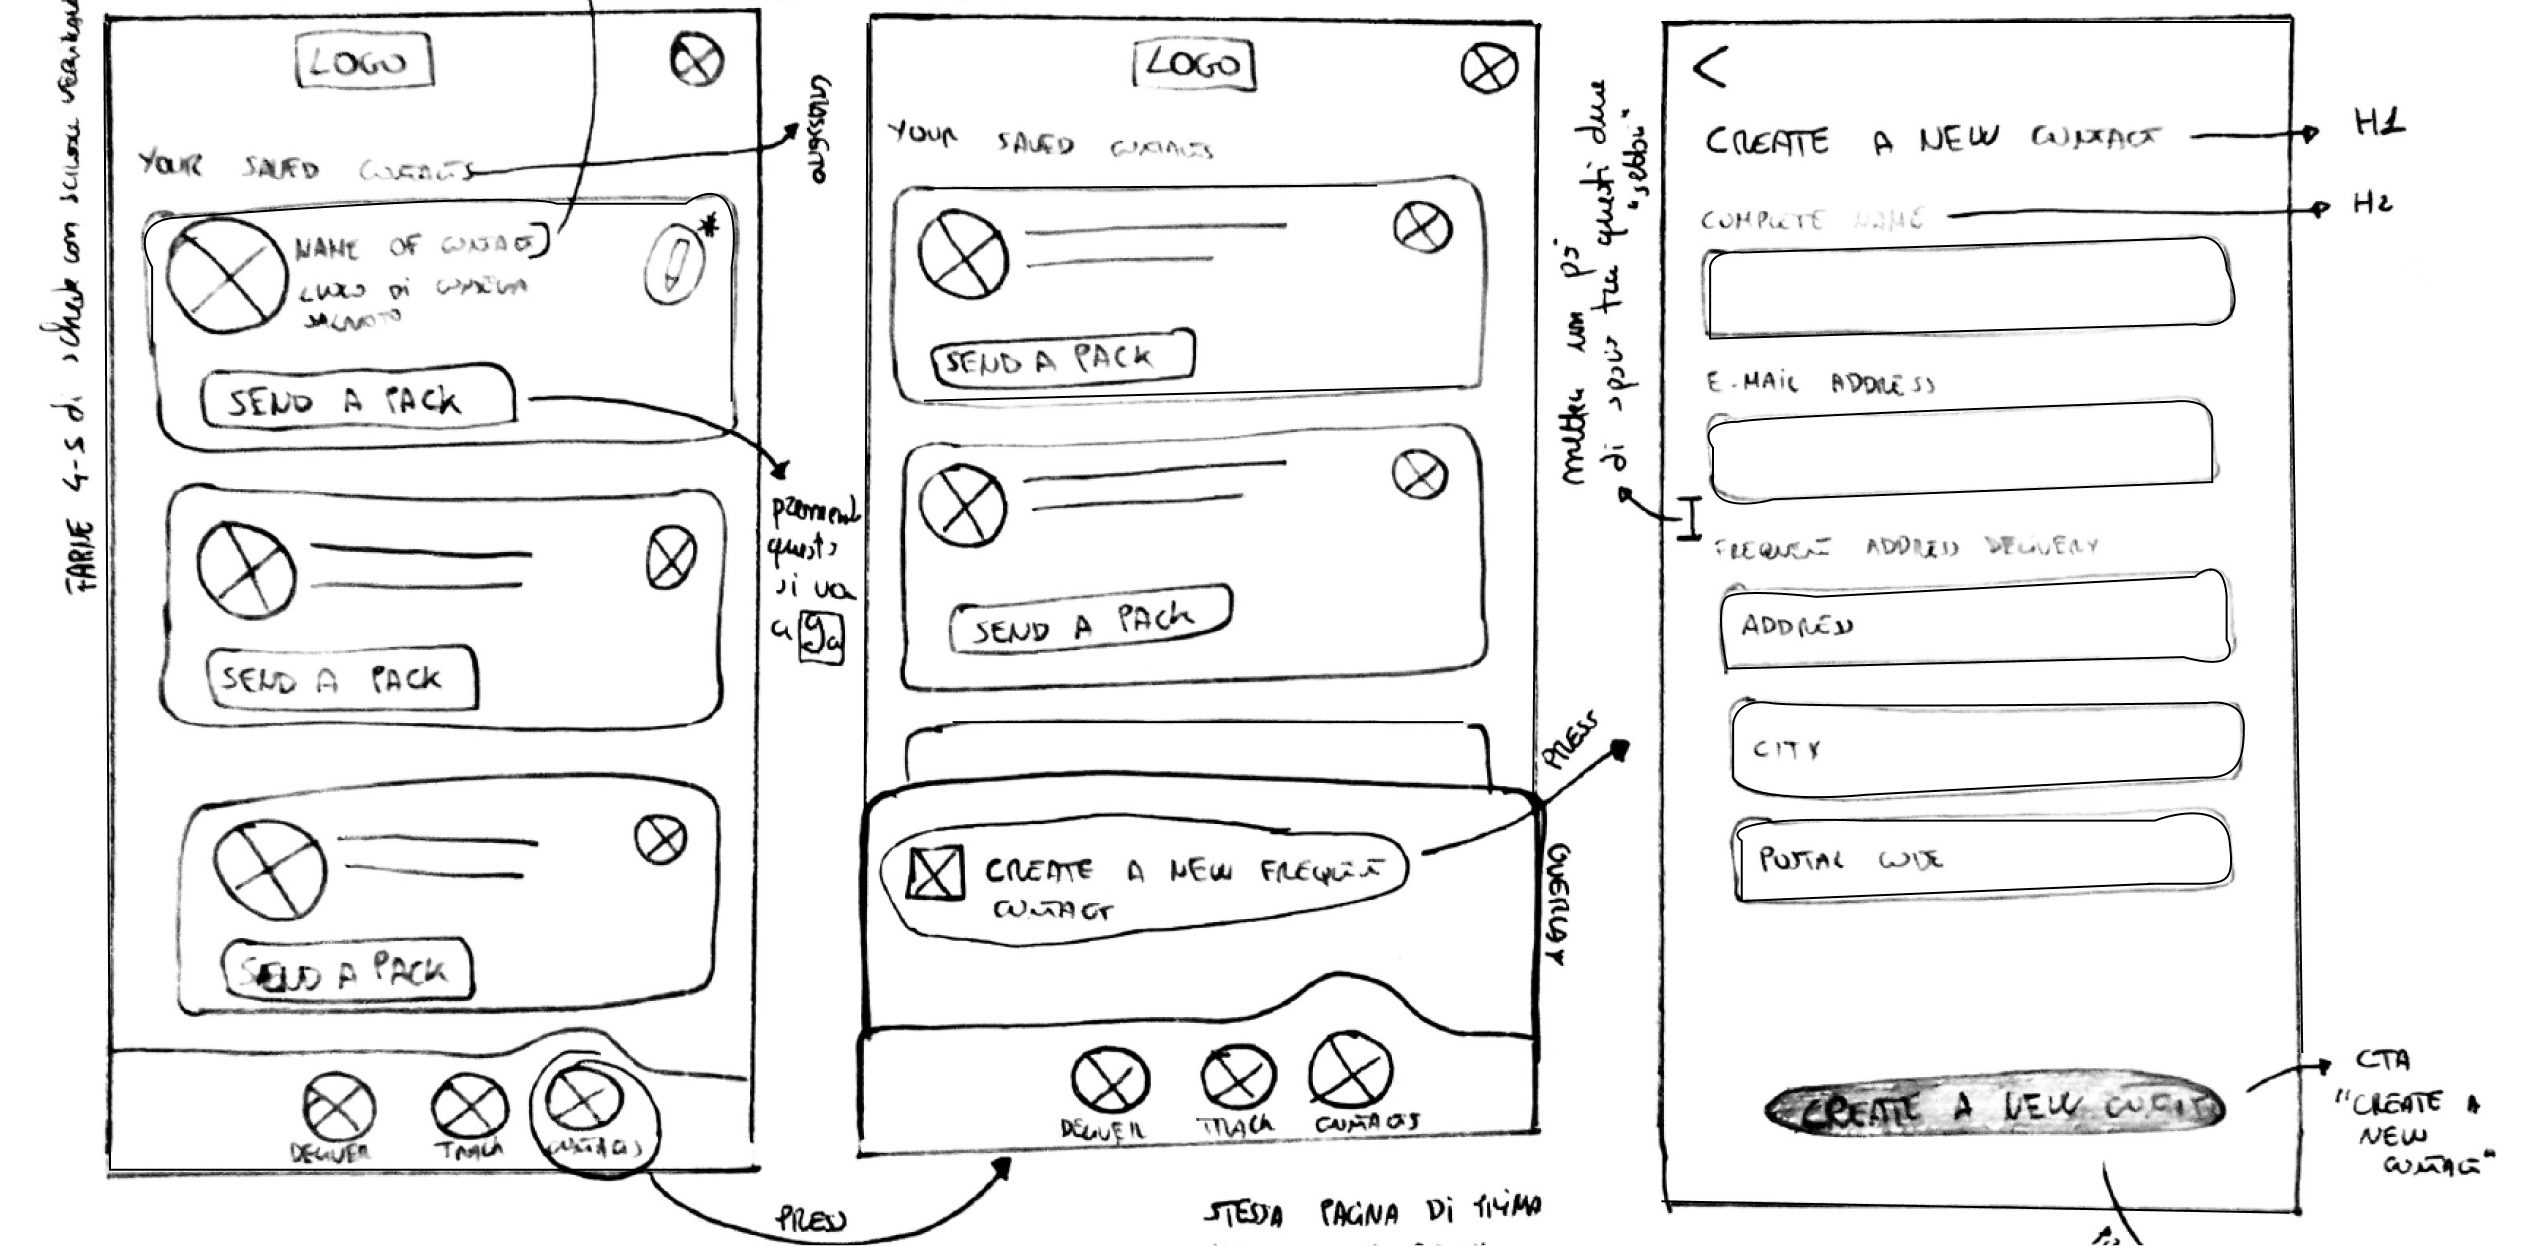 FARNE 4-5 di schede con scroll verticale
LOGO
YOUR SAVED CONTACTS
NAME OF CONTACT
LUOGO DI CONSEGNA
SALVATO
*
SEND A PACK
SEND A PACK
SEND A PACK
DELIVER
TRACK
CONTACTS
PRESS
questo
si va
a 9a
LOGO
YOUR SAVED CONTACTS
SEND A PACK
SEND A PACK
CREATE A NEW FREQUENT
CONTACT
PRESS
OVERLAY
DELIVER
TRACK
CONTACTS
STESSA PAGINA DI PRIMA
mettere un po'
di spazio tra questi due
<
CREATE A NEW CONTACT
H1
COMPLETE NAME
H2
E-MAIL ADDRESS
FREQUENT ADDRESS DELIVERY
ADDRESS
CITY
POSTAL CODE
CREATE A NEW CONTACT
CTA
"CREATE A
NEW
CONTACT"